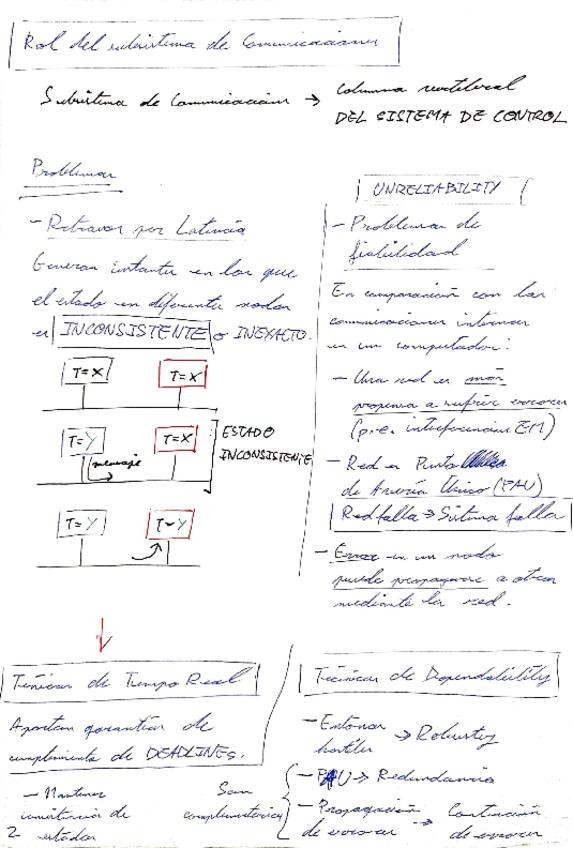 Rol del subsistema de Comunicaciones
Subsistema de Comunicación → Columna vertebral
DEL SISTEMA DE CONTROL
Problemas
- Retrasos por Latencia
Generan instantes en los que
el estado en diferentes nodos
es INCONSISTENTE o INEXACTO.
T=X T=X
T=Y T=X
mensaje
ESTADO
INCONSISTENTE
T=Y T=Y
UNRELIABILITY
- Problemas de
fiabilidad
En comparación con las
comunicaciones internas
en un computador:
- Una red es más
propensa a sufrir errores
(p.e. interferencias EM)
- Red es Punto
de Avería Único (PAU)
Red falla → Sistema falla
- Error en un nodo
puede propagarse a otros
mediante la red.
Técnicas de Tiempo Real
Aportan garantías de
cumplimiento de DEADLINES.
- Mantener
consistencia de
2 estados
Son
complementarias
Técnicas de Dependability
- Entornos
hostiles → Robustez
- PAU → Redundancia
- Propagación
de errores → Contención
de errores